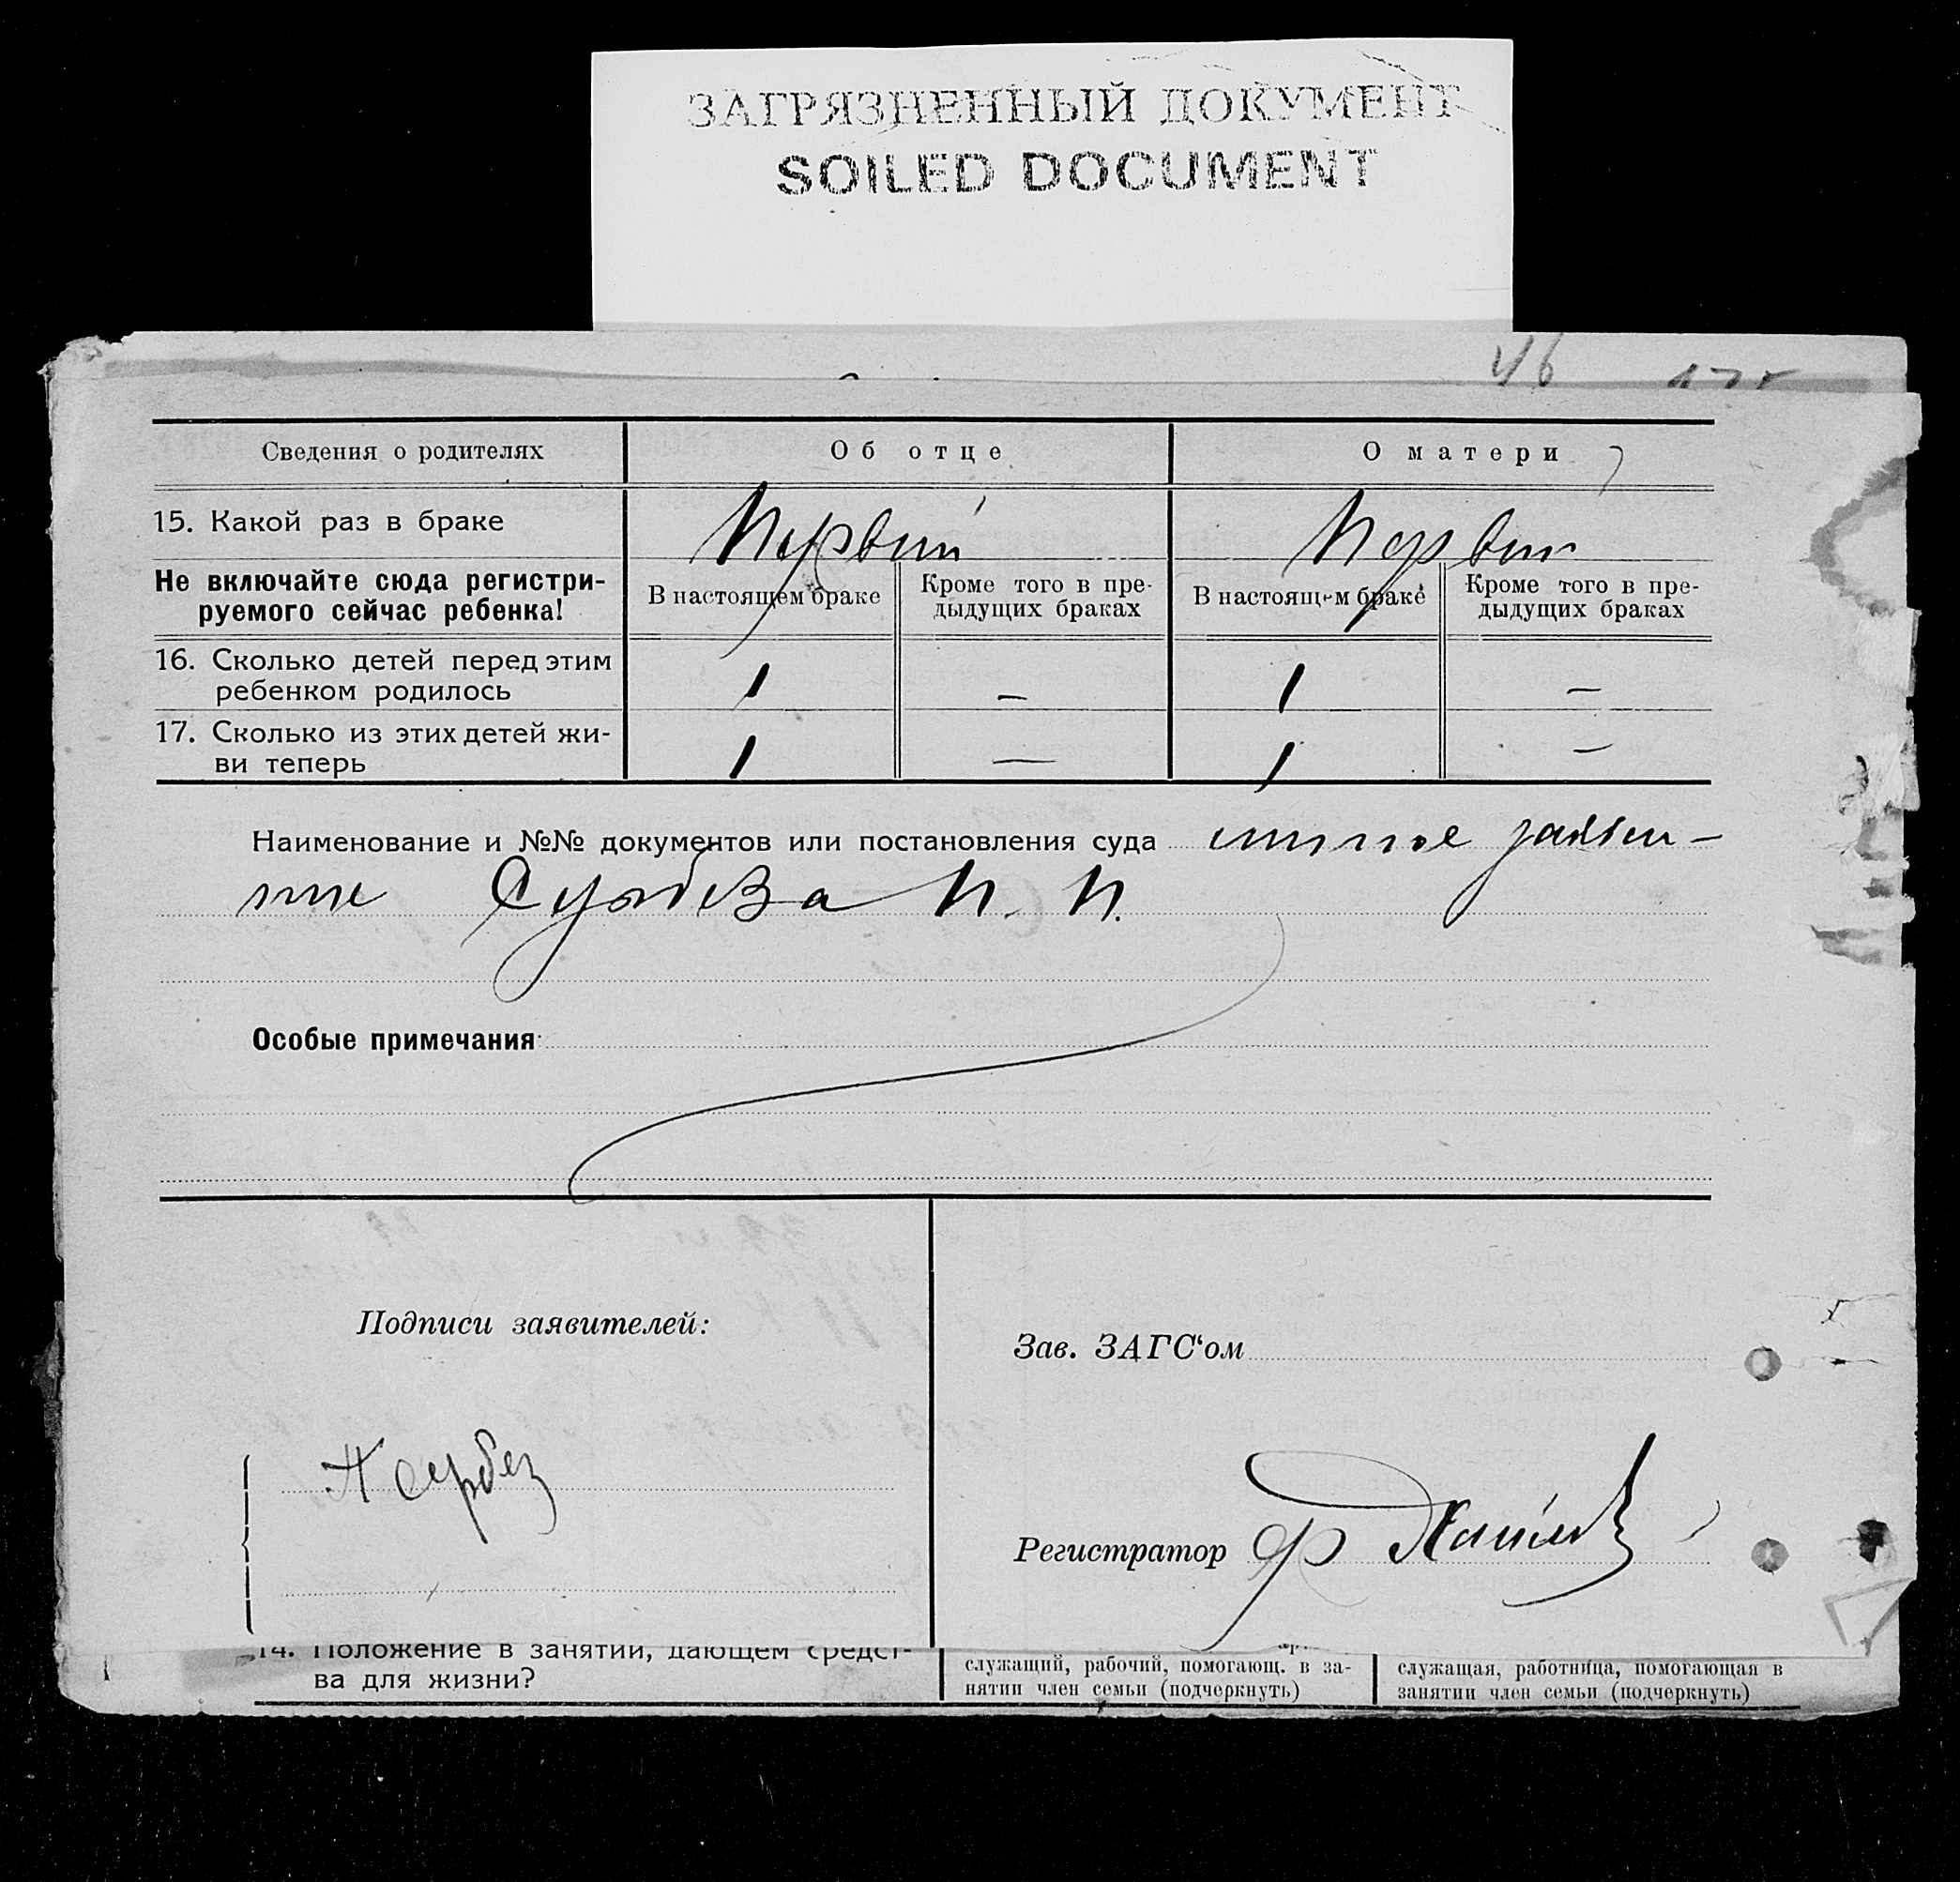 ЗАГРЯЗНЕННЫЙ ДОКУМЕНТ
SOILED DOCUMENT
46
Сведения о родителях Об отце О матери
15. Какой раз в браке Первый Первый
Не включайте сюда регистри-
руемого сейчас ребенка!
В настоящем браке Кроме того в пре-
дыдущих браках
В настоящем браке Кроме того в пре-
дыдущих браках
16. Сколько детей перед этим
ребенком родилось 1 — 1 —
17. Сколько из этих детей жи-
ви теперь 1 — 1 —
Наименование и №№ документов или постановления суда личное заявле-
ние П. П.
Особые примечания
Подписи заявителей:
Зав. ЗАГС‘ом
Регистратор
14. Положение в занятии, дающем средст-
ва для жизни?
служащий, рабочий, помогающ. в за-
нятии член семьи (подчеркнуть)
служащая, работница, помогающая в
занятии член семьи (подчеркнуть)